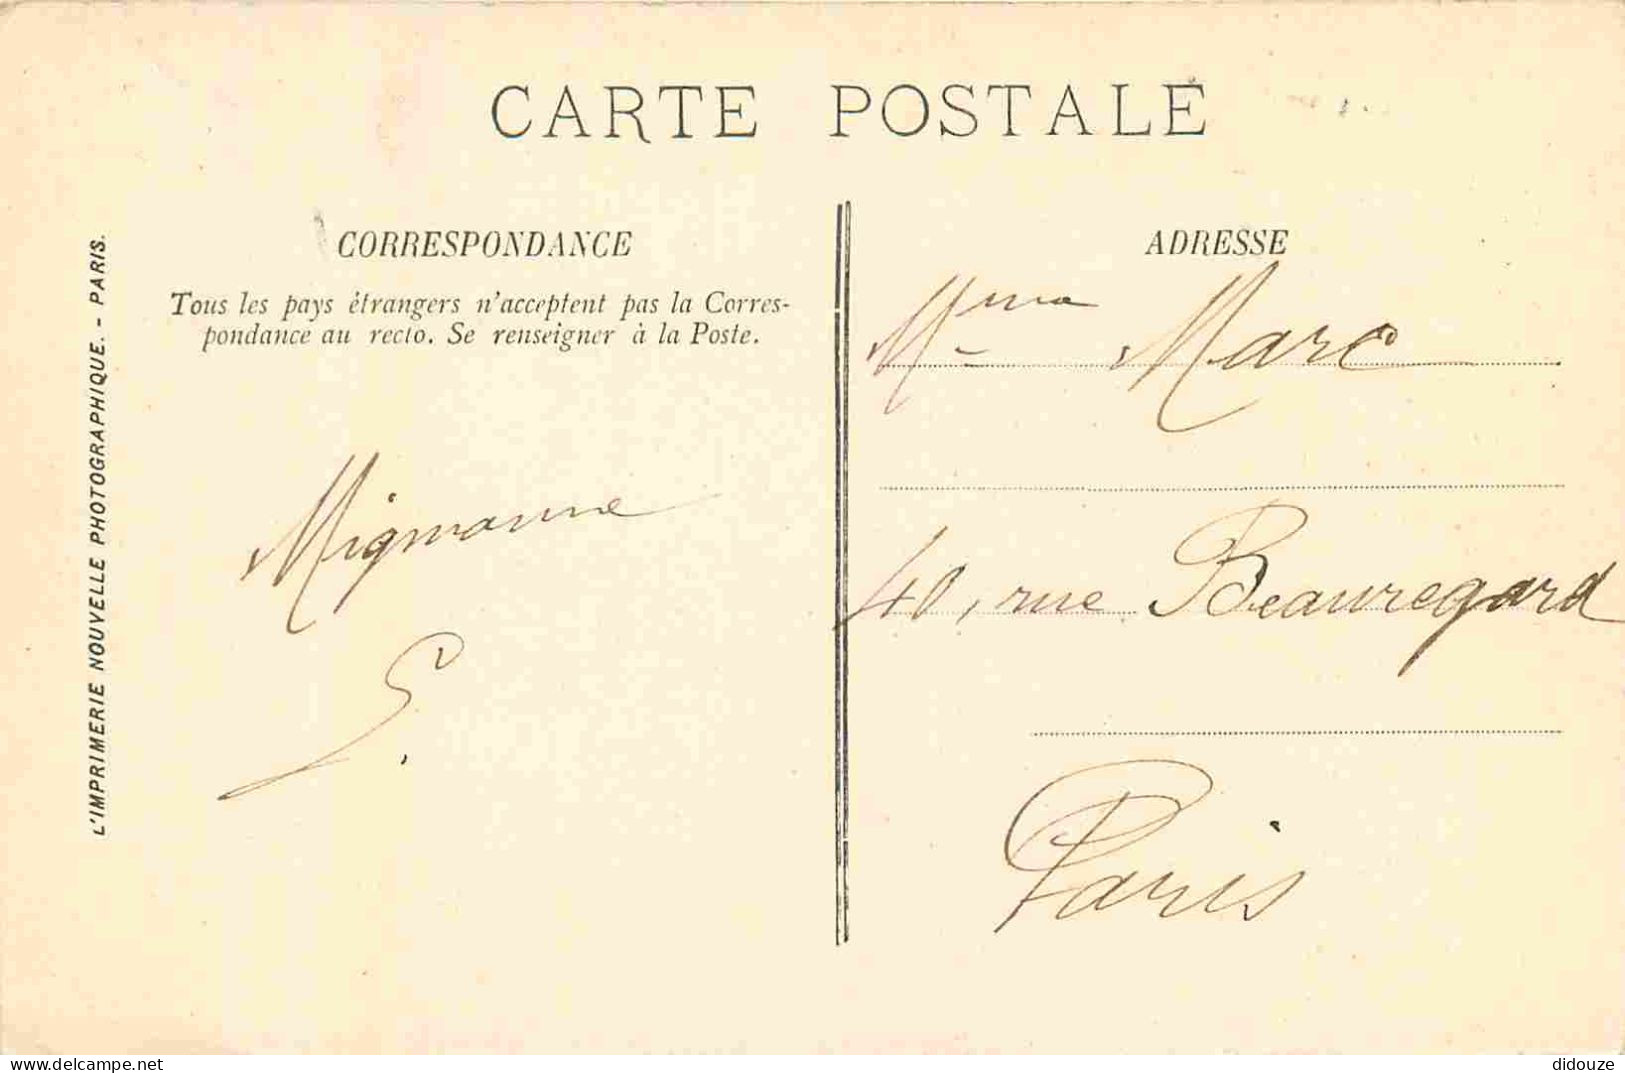 CARTE POSTALE
L'IMPRIMERIE NOUVELLE PHOTOGRAPHIQUE. - PARIS.
CORRESPONDANCE
Tous les pays étrangers n'acceptent pas la Corres-
pondance au recto. Se renseigner à la Poste.
Mignonne
S.
ADRESSE
Mme Marc
40, rue Beauregard
Paris
delcampe.net
didouze